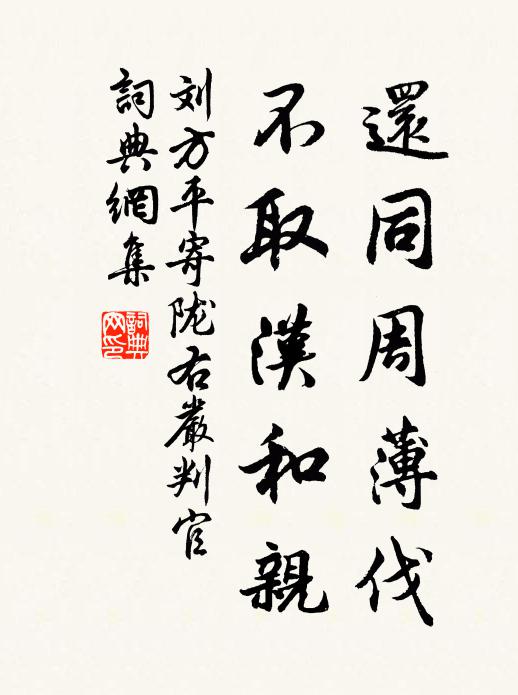 還同周薄伐
不取漢和親
刘方平寄陇右嚴判官
詞典網集
詞典
网印